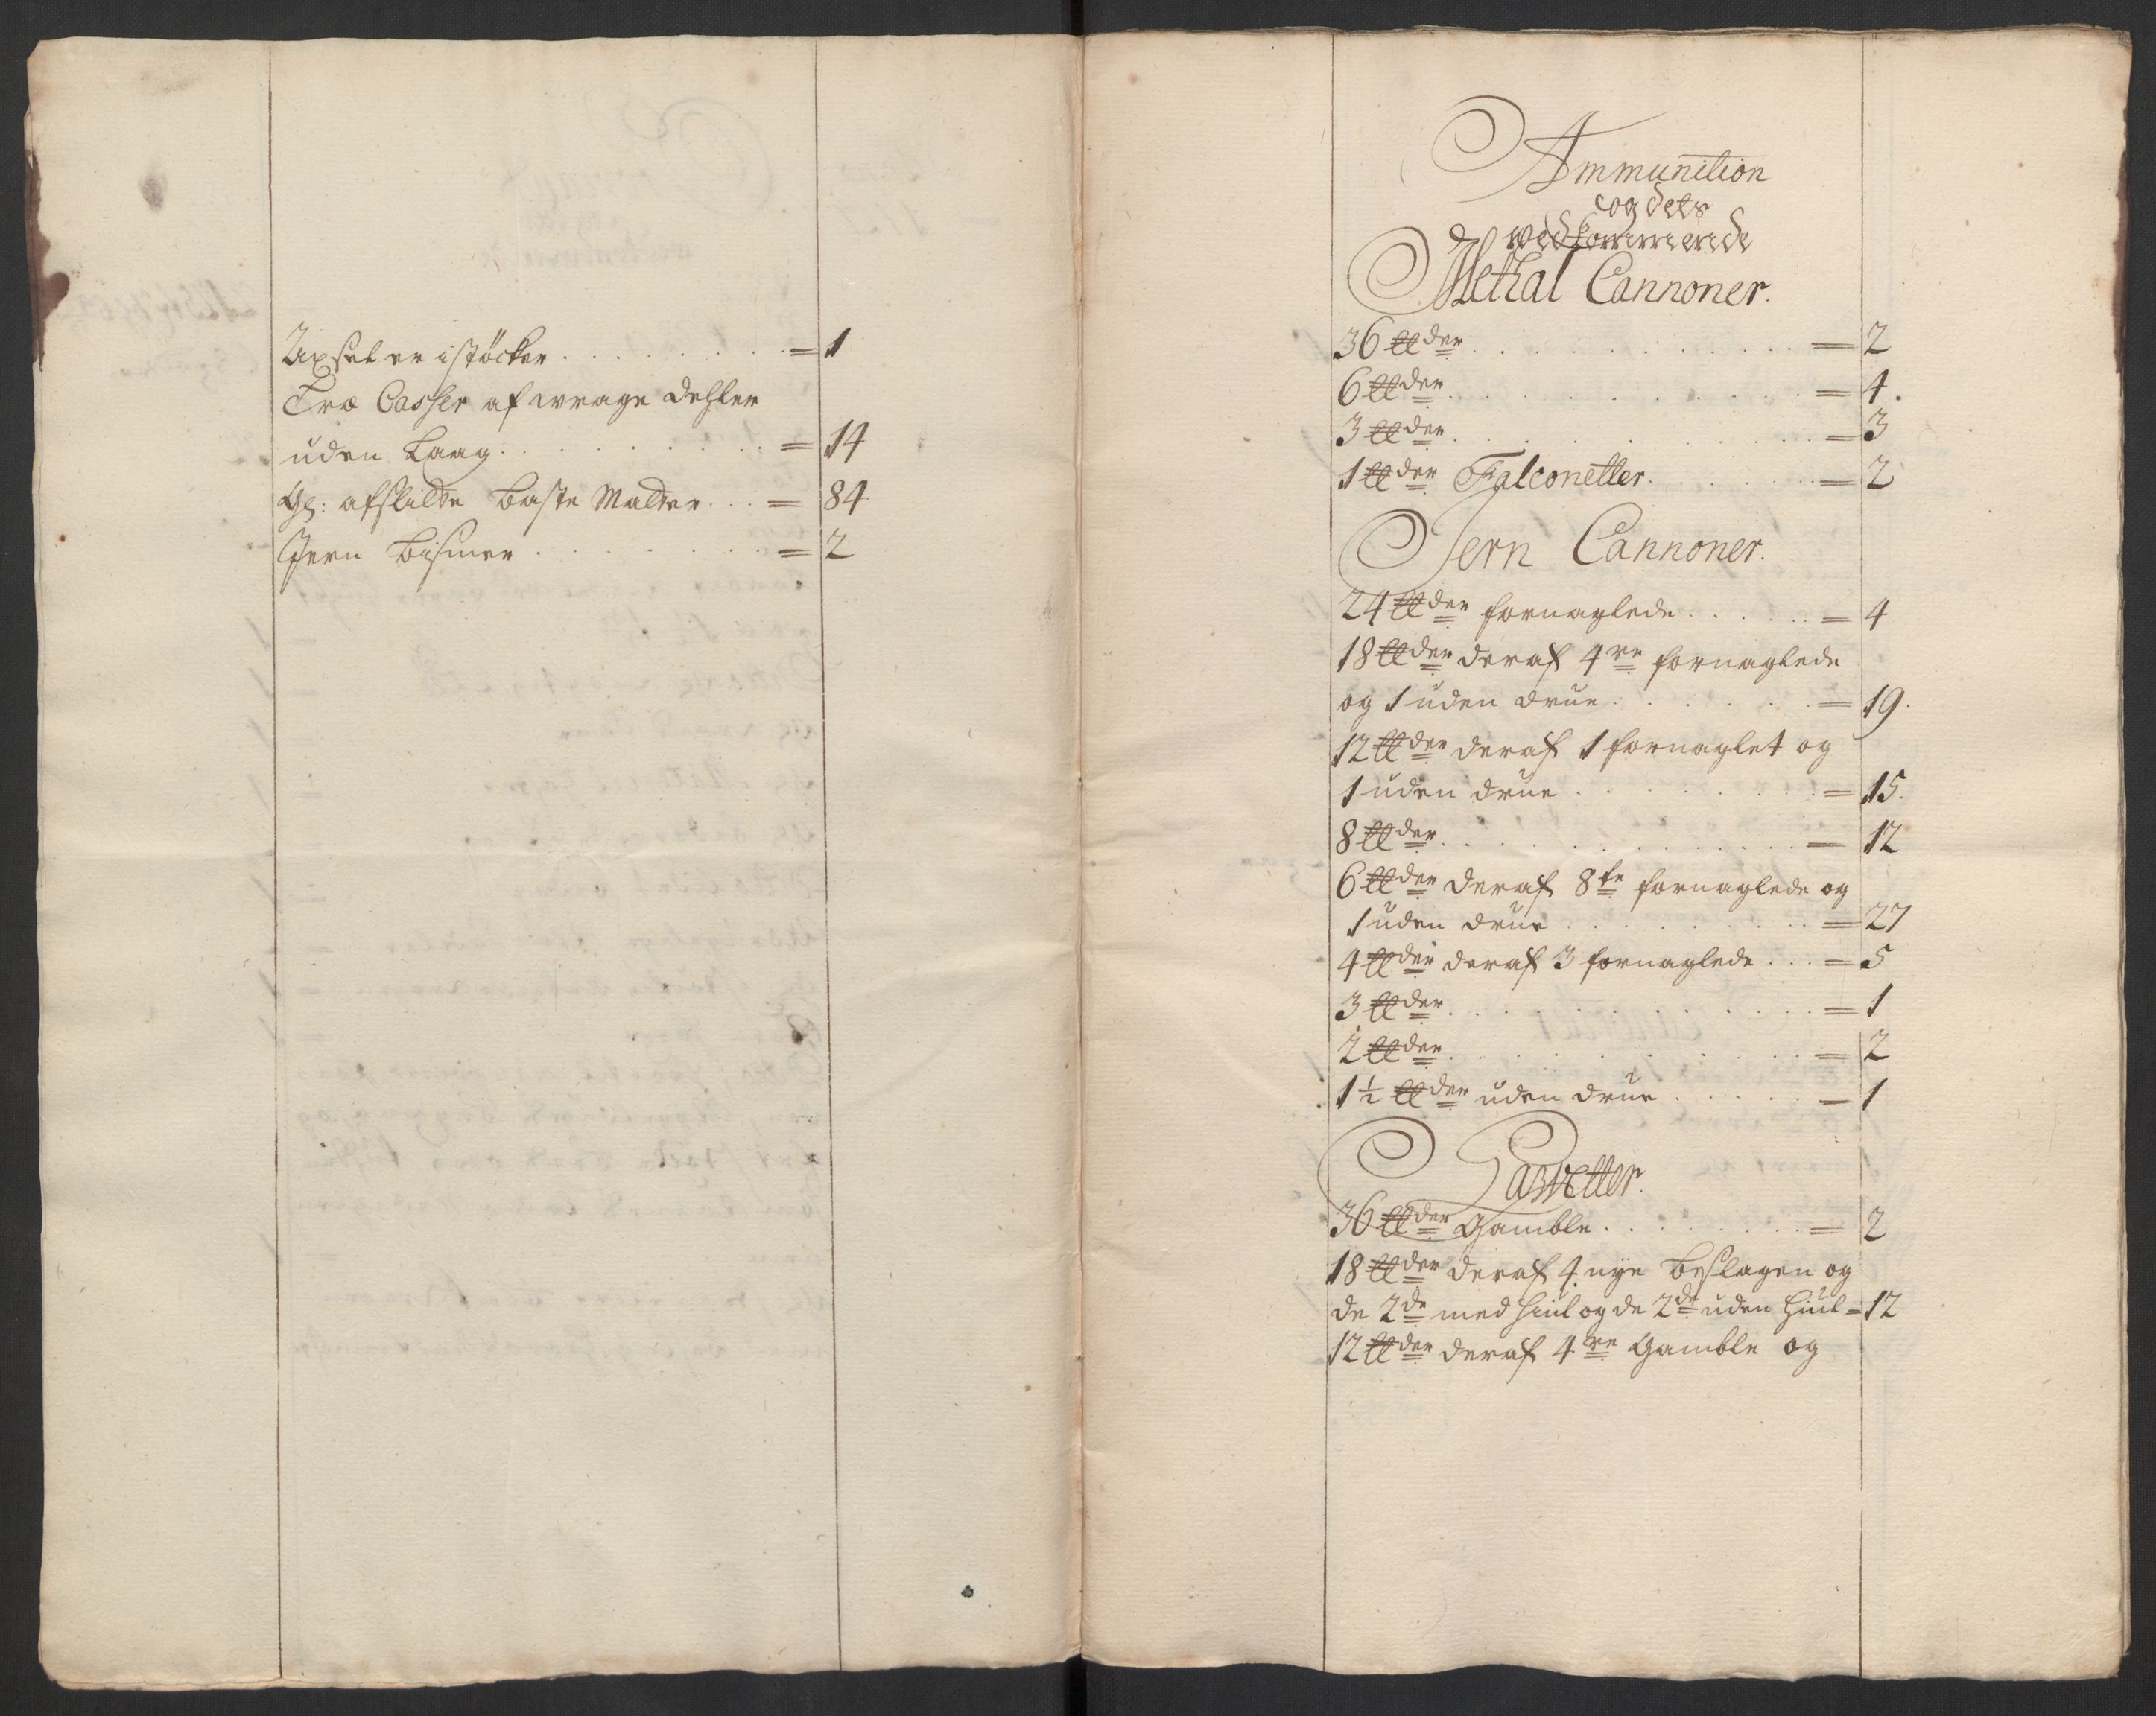 Uxsel er i støcker . . . . . . . . = 1
Træ Casser af wrage dehler
uden Laag . . . . . . . . = 14
Gl: afslidte Baste Matter . . . = 84
Jern Bismer . . . . . . . . = 2
Ammunition
og dets
vedkommende
Methal Cannoner.
36 ℔der . . . . . . . . = 2
6 ℔der . . . . . . . . = 4.
3 ℔der . . . . . . . . = 3
1 ℔der Falconetter . . . . . = 2
Jern Cannoner.
24 ℔der fornaglede . . . . . = 4
18 ℔der deraf 4re fornaglede
og 1 uden drue . . . . . . = 19.
12 ℔der deraf 1 fornaglet og
1 uden drue . . . . . . . = 15.
8 ℔der . . . . . . . . = 12
6 ℔der deraf 8te fornaglede og
1 uden drue . . . . . . . = 27
4 ℔der deraf 3 fornaglede . . . = 5
3 ℔der . . . . . . . . = 1
2 ℔der . . . . . . . . = 2
1½ ℔der uden drue . . . . . = 1
36 ℔der Gamble . . . . . . = 2
18 ℔der deraf 4 nye Beslagen og
de 2de med hiul og de 2de uden hiul = 12
12 ℔der deraf 4re Gamble og